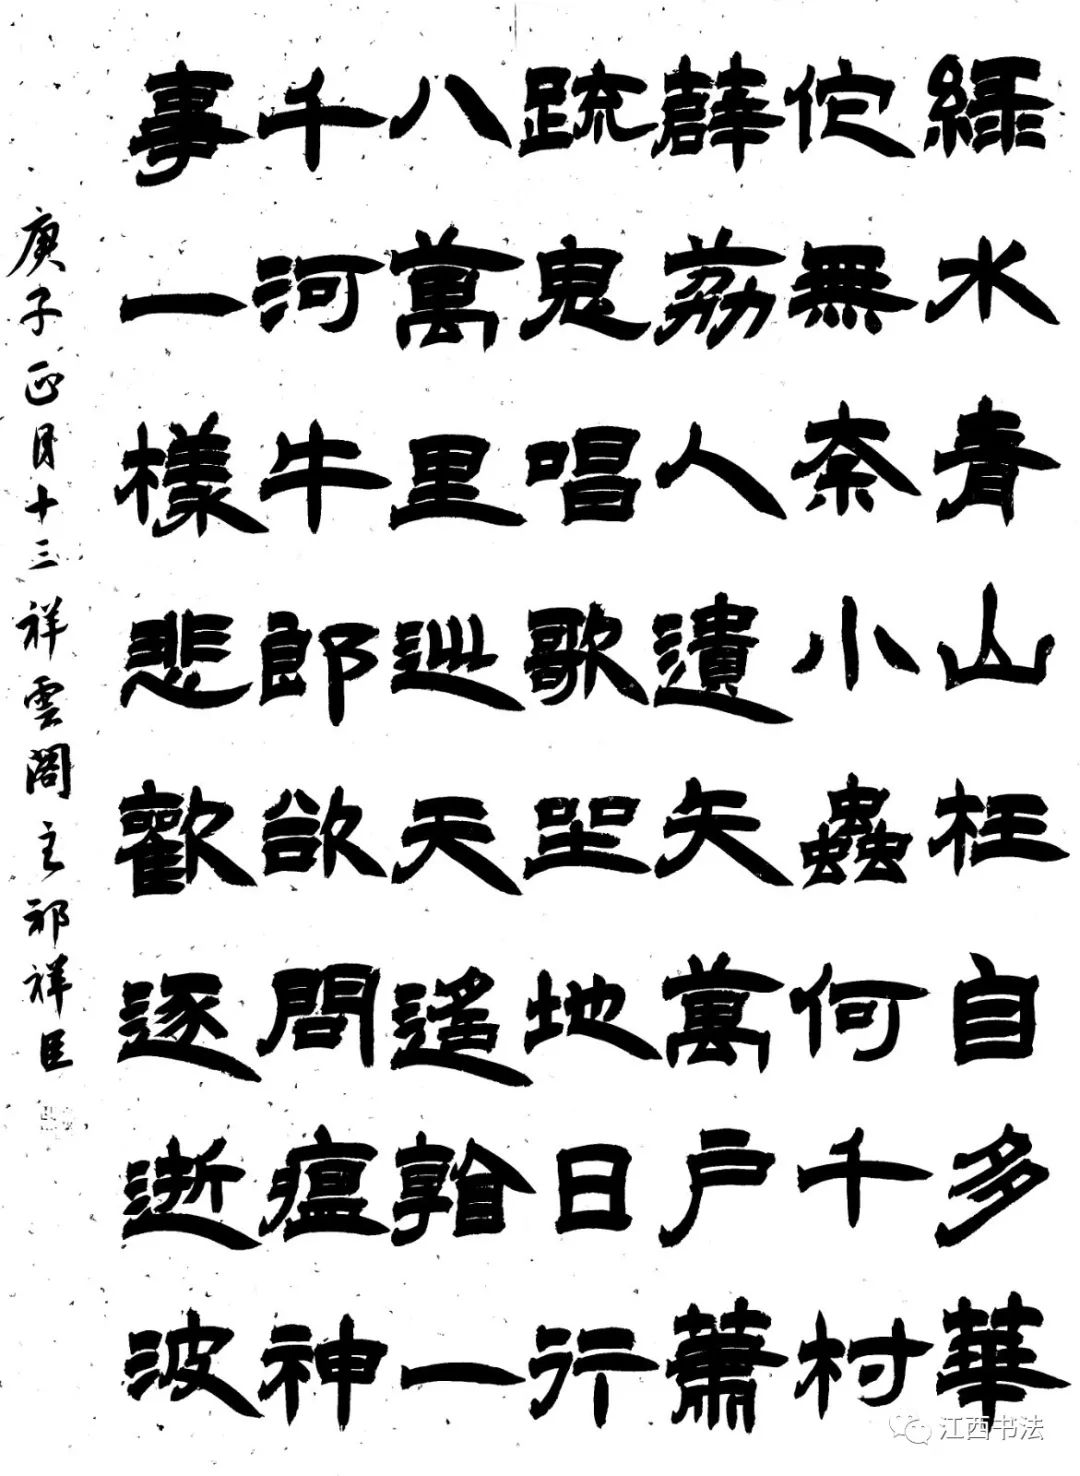 緑水青山枉自多華
佗無奈小蟲何千村
薜荔人遺矢萬戶蕭
䟽鬼唱歌坐地日行
八萬里巡天遙看一
千河牛郎欲問瘟神
事一樣悲歡逐逝波
庚子正月十三祥雲閣主祁祥臣
江西书法